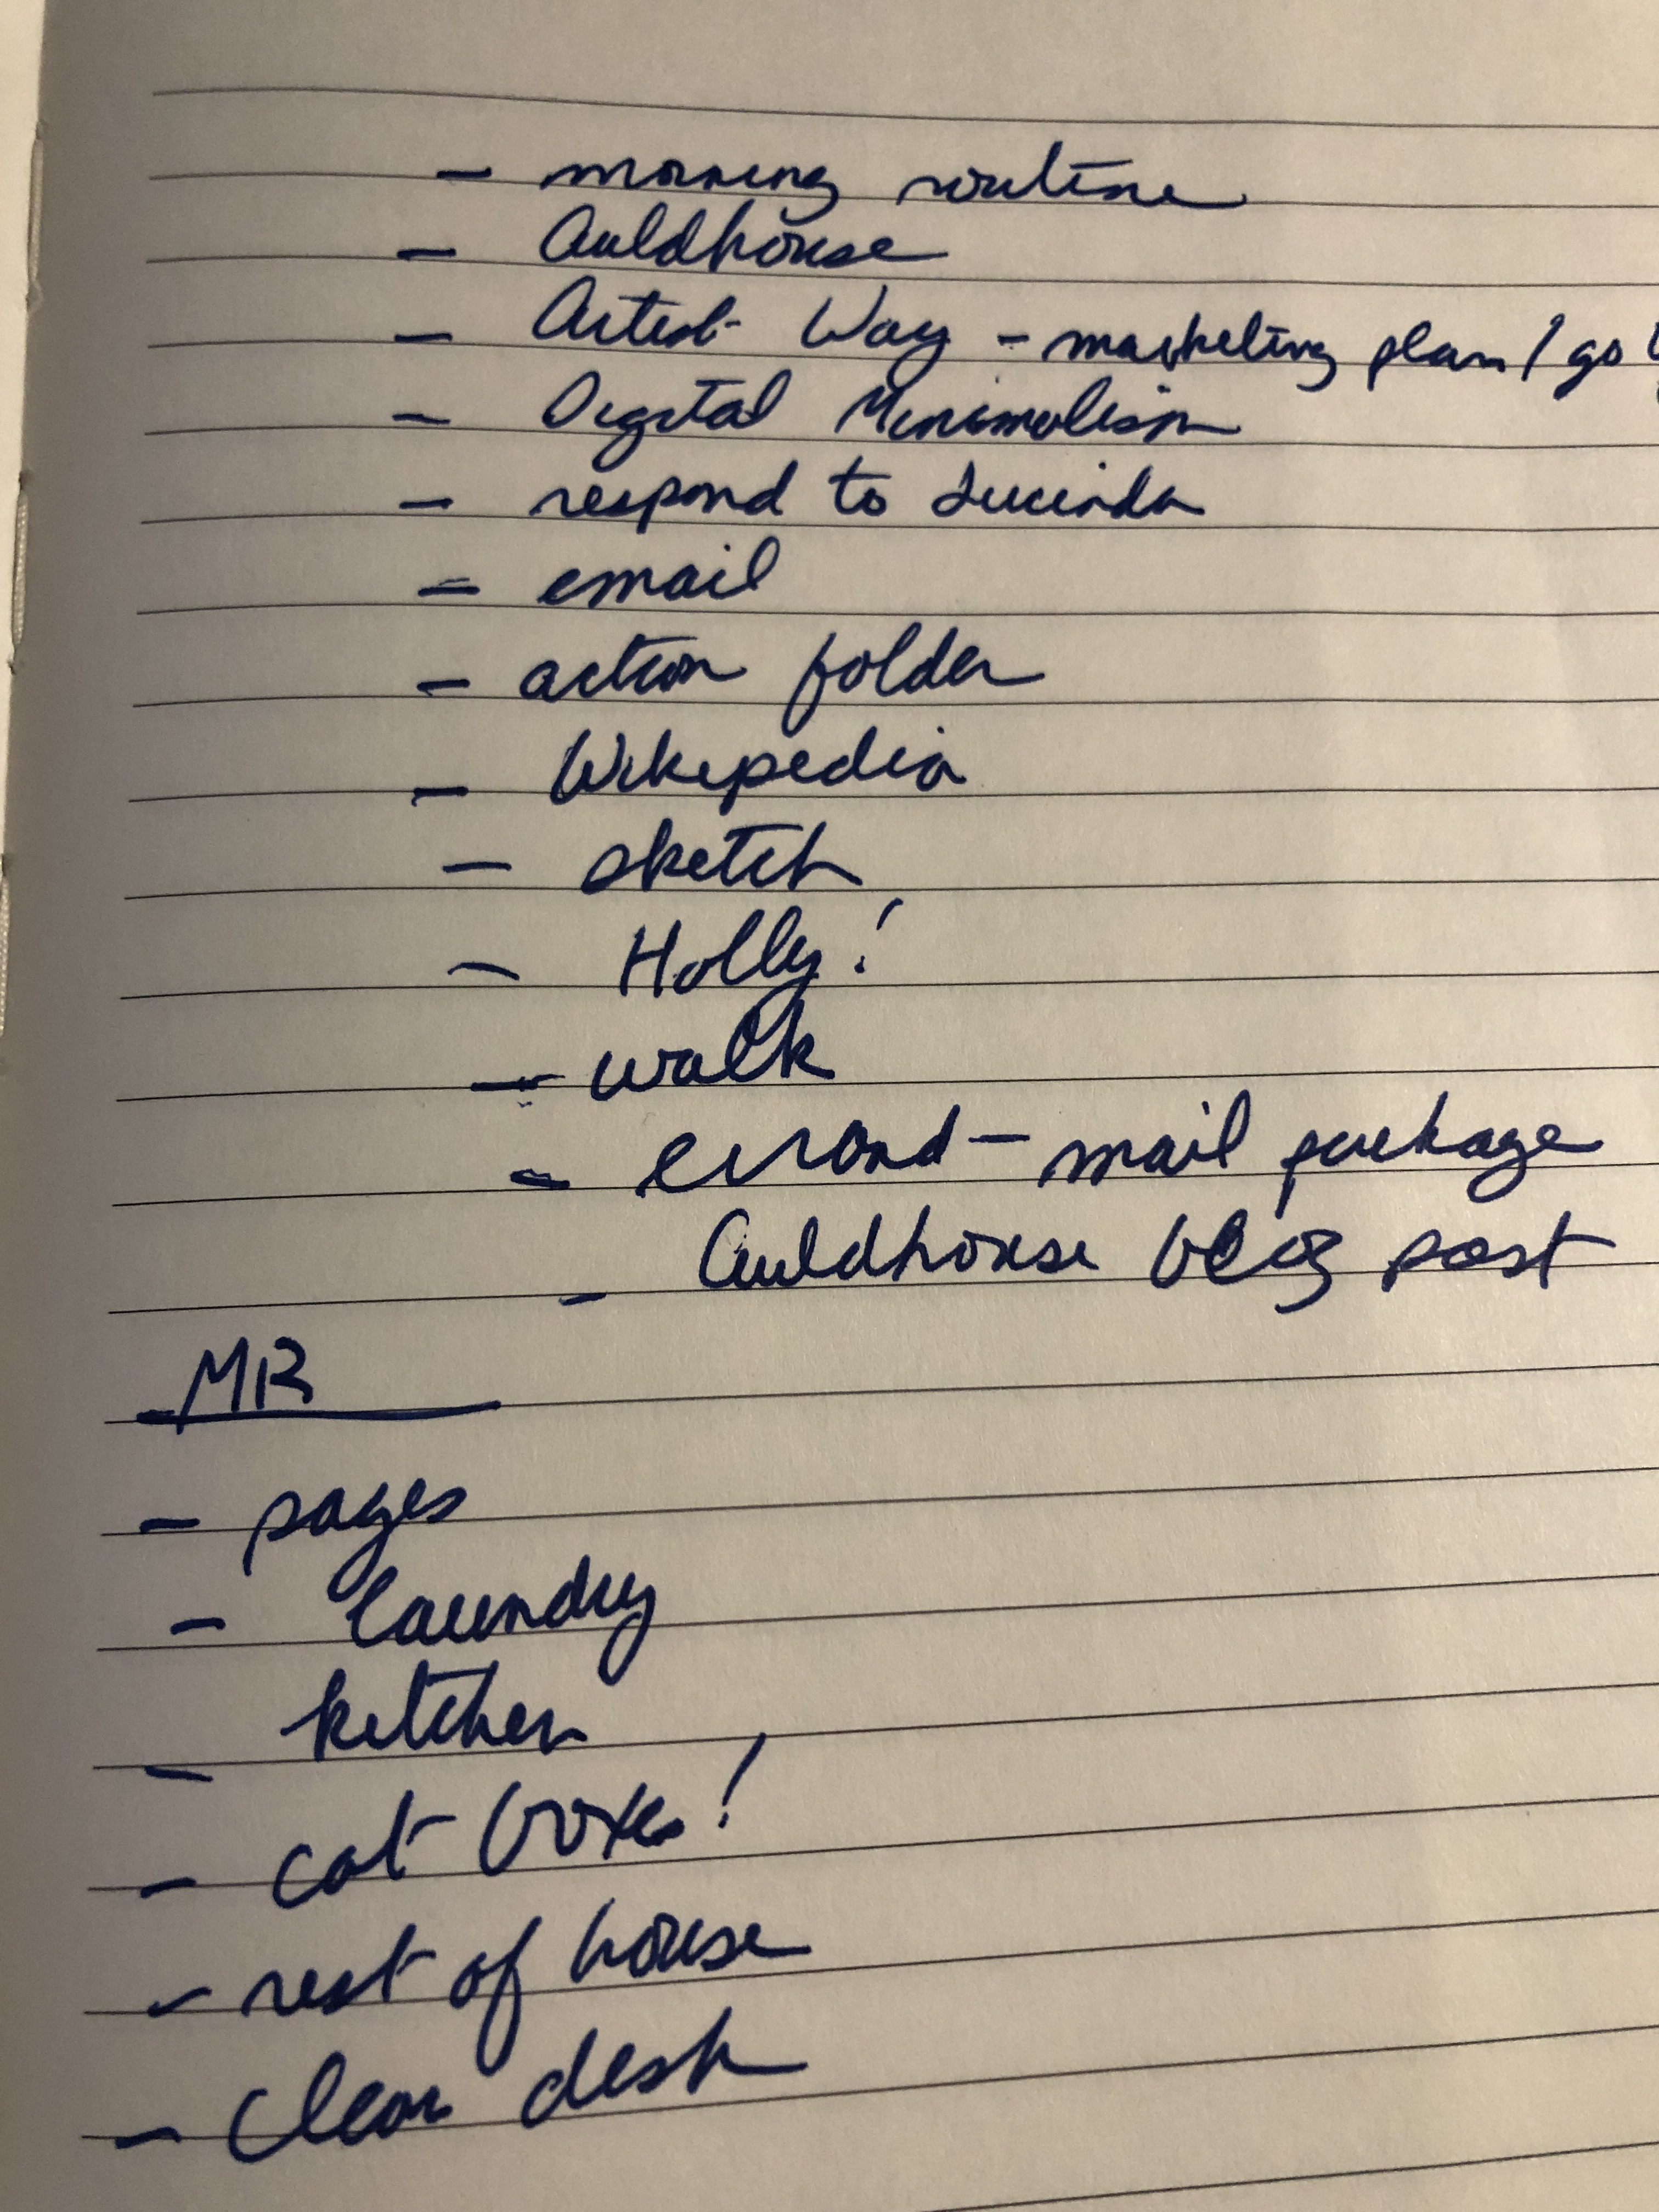 - morning routine
- Auldhouse
- Artist Way - marketing plan / go
- Digital Minimalism
- respond to Lucinda
- email
- action folder
- Wikipedia
- sketch
- Holly!
- walk
- errand - mail package
- Auldhouse blog post
MR
- pages
- laundry
- kitchen
- cat boxes!
- rest of house
- clear desk